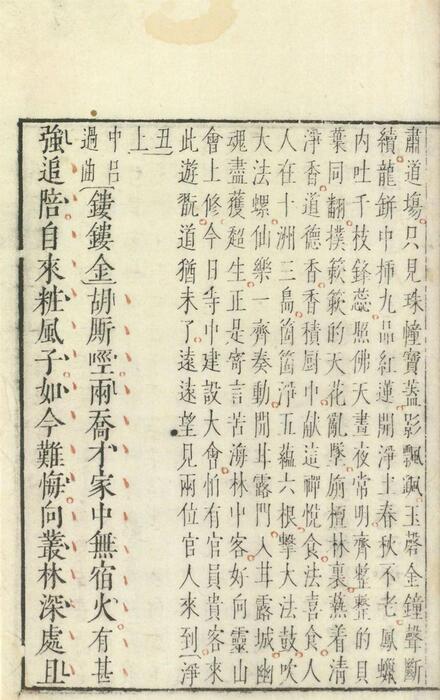 肅道場只見珠幢寶蓋影飄颻玉磬金鐘聲斷
續龍餅中揷九品紅蓮開淨土春秋不老鳳蠟
内吐千枝鋒蕊照佛天晝夜常明齊整整的貝
葉同翻撲簌簌的天花亂墜旃檀林裏爇着清
淨香道德香香積厨中献這禪悅食法喜食人
人在十洲三島箇箇淨五蘊六根擊大法鼓吹
大法螺仙樂一齊奏動開甘露門入甘露城幽
魂盡獲超生正是寄言苦海林中客好向靈山
會上修今日寺中建設大會怕有官員貴客來
此遊翫道猶未了遠遠望見兩位官人來到淨
丑上
中呂過曲
鏤鏤金胡厮㖑兩喬才家中無宿火有甚
強追陪自來粧風子如今難悔向叢林深處且